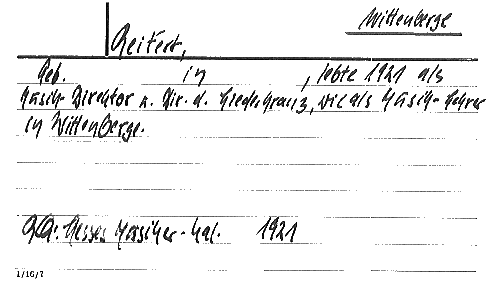 Wittenberge
Geifert,
Geb. in , lebte 1921 als
Musik-Direktor u. Dir. d. Liederkranz, wie als Musik-Lehrer
in Wittenberge.
QQ: Hesses Musiker-Kal. 1921
1/16/7